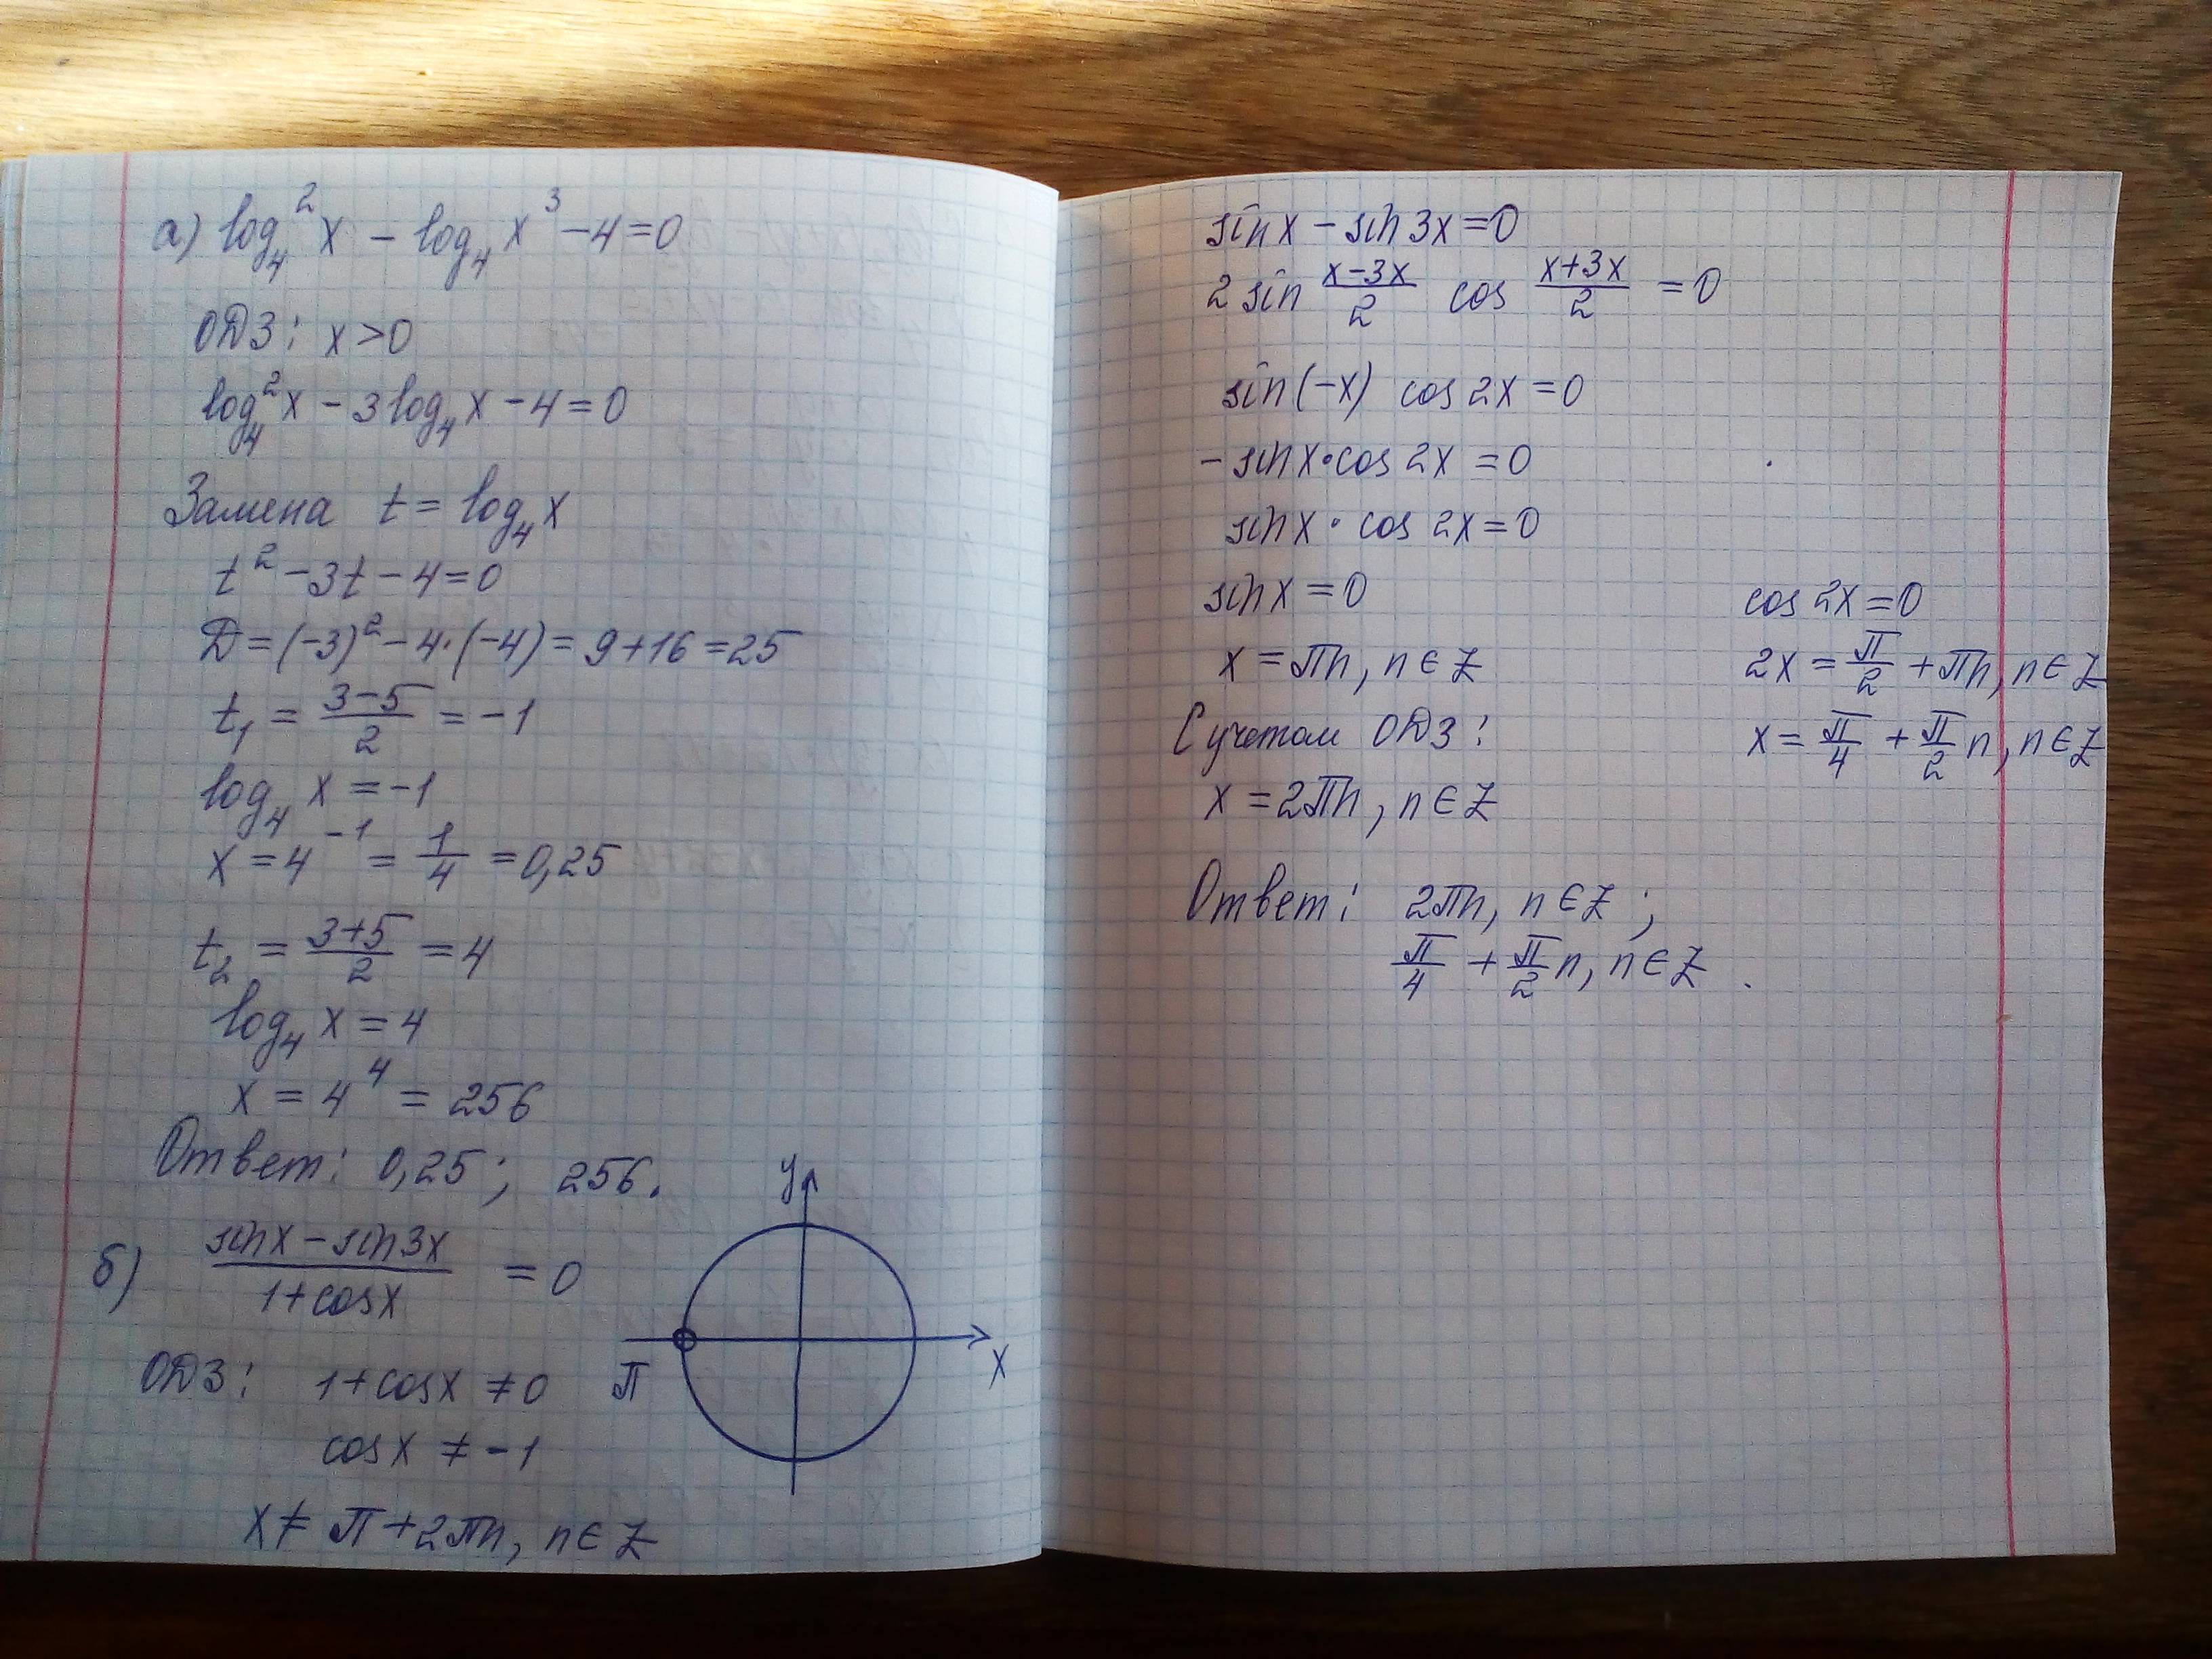 а) log₄²x − log₄x³ − 4 = 0
ОДЗ: x > 0
log₄²x − 3log₄x − 4 = 0
Замена t = log₄x
t² − 3t − 4 = 0
D = (−3)² − 4·(−4) = 9 + 16 = 25
t₁ = (3−5)/2 = −1
log₄x = −1
x = 4⁻¹ = 1/4 = 0,25
t₂ = (3+5)/2 = 4
log₄x = 4
x = 4⁴ = 256
Ответ: 0,25; 256.
б) (sinx − sin3x)/(1+cosx) = 0
y
x
π
ОДЗ: 1+cosx ≠ 0
cosx ≠ −1
x ≠ π + 2πn, n ∈ Z
sinx − sin3x = 0
2 sin (x−3x)/2 cos (x+3x)/2 = 0
sin(−x) cos2x = 0
−sinx·cos2x = 0
sinx·cos2x = 0
sinx = 0
x = πn, n ∈ Z
С учетом ОДЗ:
x = 2πn, n ∈ Z
cos2x = 0
2x = π/2 + πn, n ∈ Z
x = π/4 + π/2 n, n ∈ Z
Ответ: 2πn, n ∈ Z;
π/4 + π/2 n, n ∈ Z.